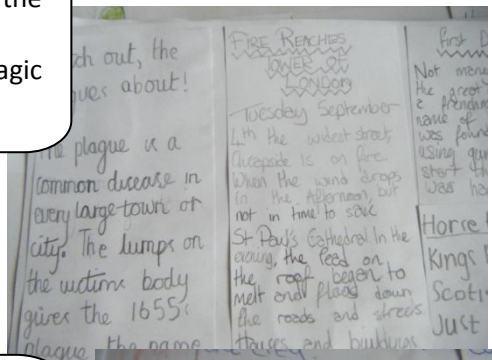 the
agic
ch out, the
gues about!
The plague is a
common disease in
every large town or
city. The lumps on
the victims body
gives the 1655s
plague the name
FIRE REACHES
TOWER OF
LONDON
Tuesday September
4th the widest street,
Cheapside is on fire.
When the wind drops
in the Afternoon, but
not in time to save
St Paul's Cathedral. In the
evening, the lead on
the roof began to
melt and flood down
the roads and streets.
Houses and buildings
first D
Not many
the great
a frenchman
name of
was found
using gun
start th
was ha
Horse
Kings
Scot
Just